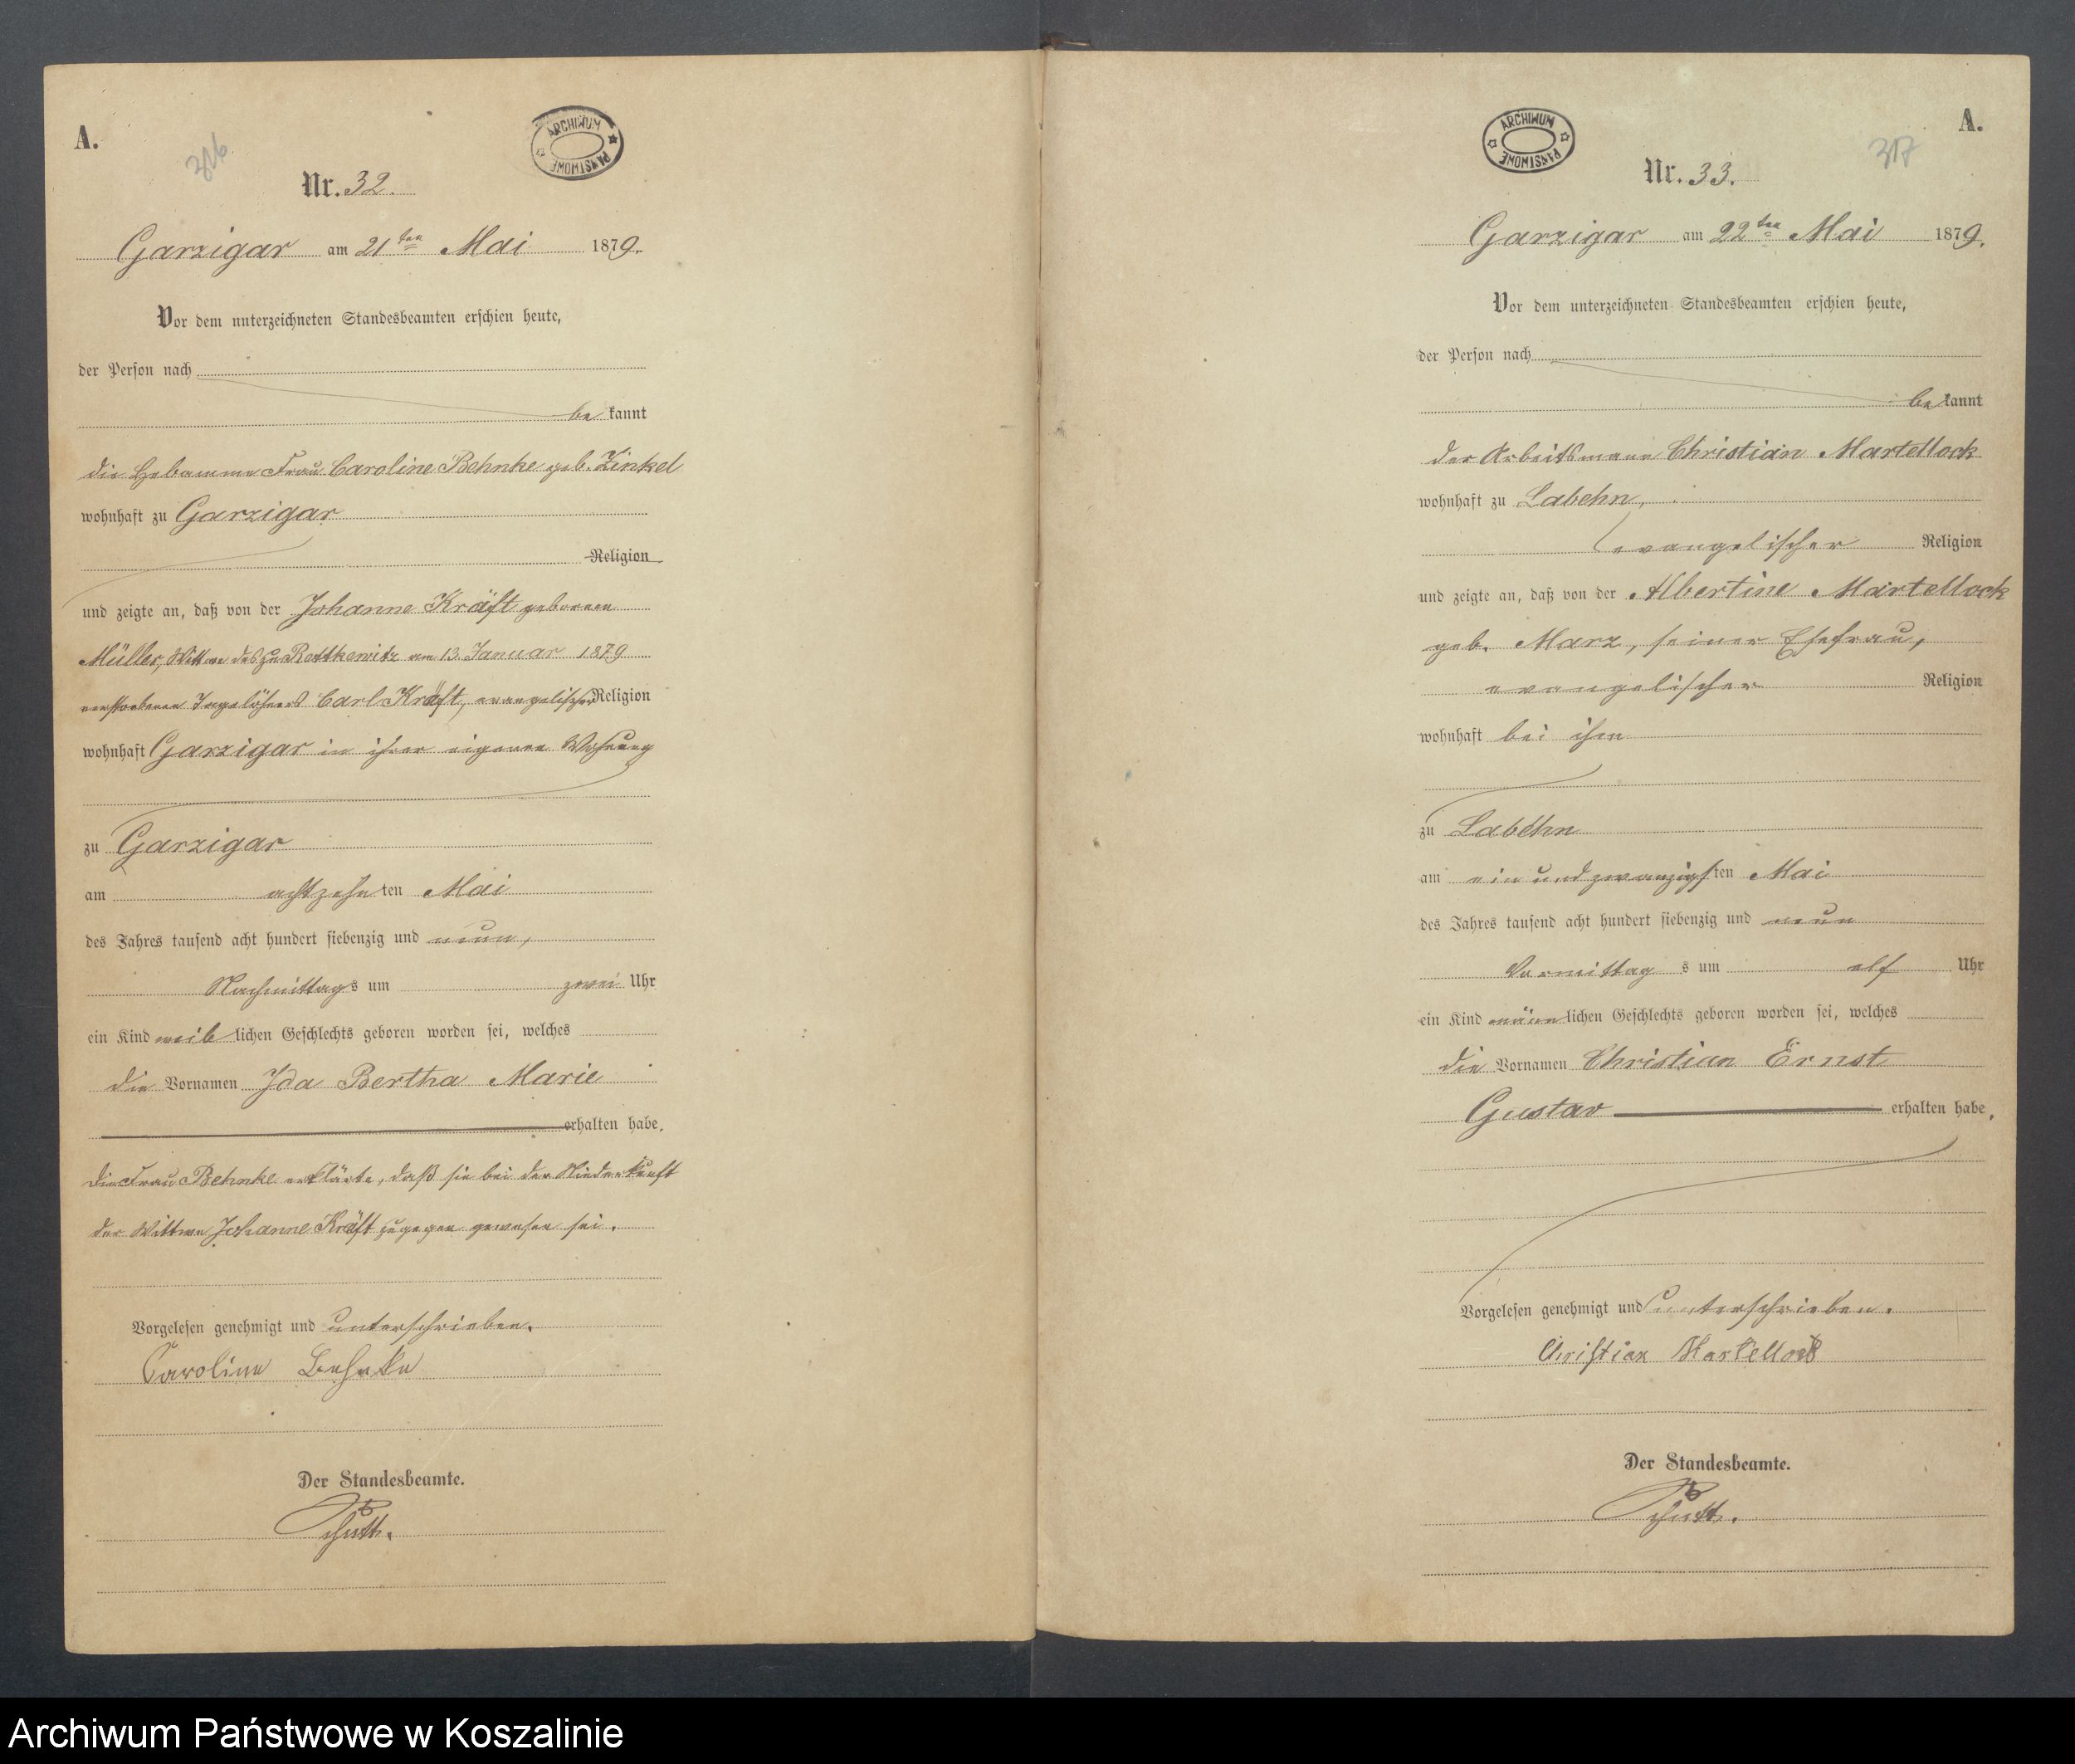 A.
316
ARCHIWUM PAŃSTWOWE
Nr. 32.
Garzigar am 21ten Mai 1879.
Vor dem unterzeichneten Standesbeamten erschien heute,
der Person nach
be kannt
die Hebamme Frau Caroline Behnke geb. Zinkel
wohnhaft zu Garzigar
Religion
und zeigte an, daß von der Johanne Kräft geborenen
Müller, Wittwe des zu Rettkewitz am 13. Januar 1879
verstorbenen Tagelöhners Carl Kräft, evangelischer Religion
wohnhaft Garzigar in ihrer eigenen Wohnung
zu Garzigar
am achtzehn ten Mai
des Jahres tausend acht hundert siebenzig und neun,
Nachmittag s um zwei Uhr
ein Kind weib lichen Geschlechts geboren worden sei, welches
die Vornamen Ida Bertha Marie
erhalten habe.
Die Frau Behnke erklärte, daß sie bei der Niederkunft
der Wittwe Johanne Kräft zugegen gewesen sei.
Vorgelesen genehmigt und unterschrieben.
Caroline Behnke
Der Standesbeamte.
A.
317
ARCHIWUM PAŃSTWOWE
Nr. 33.
Garzigar am 22ten Mai 1879.
Vor dem unterzeichneten Standesbeamten erschien heute,
der Person nach
be kannt
der Arbeitsmann Christian Martellock
wohnhaft zu Labehn,
evangelischer Religion
und zeigte an, daß von der Albertine Martellock
geb. Marz, seiner Ehefrau,
evangelischer Religion
wohnhaft bei ihm
zu Labehn
am ein und zwanzigs ten Mai
des Jahres tausend acht hundert siebenzig und neun
Vormittag s um elf Uhr
ein Kind männ lichen Geschlechts geboren worden sei, welches
die Vornamen Christian Ernst
Gustav erhalten habe.
Vorgelesen genehmigt und unterschrieben.
Christian Martellock
Der Standesbeamte.
Archiwum Państwowe w Koszalinie